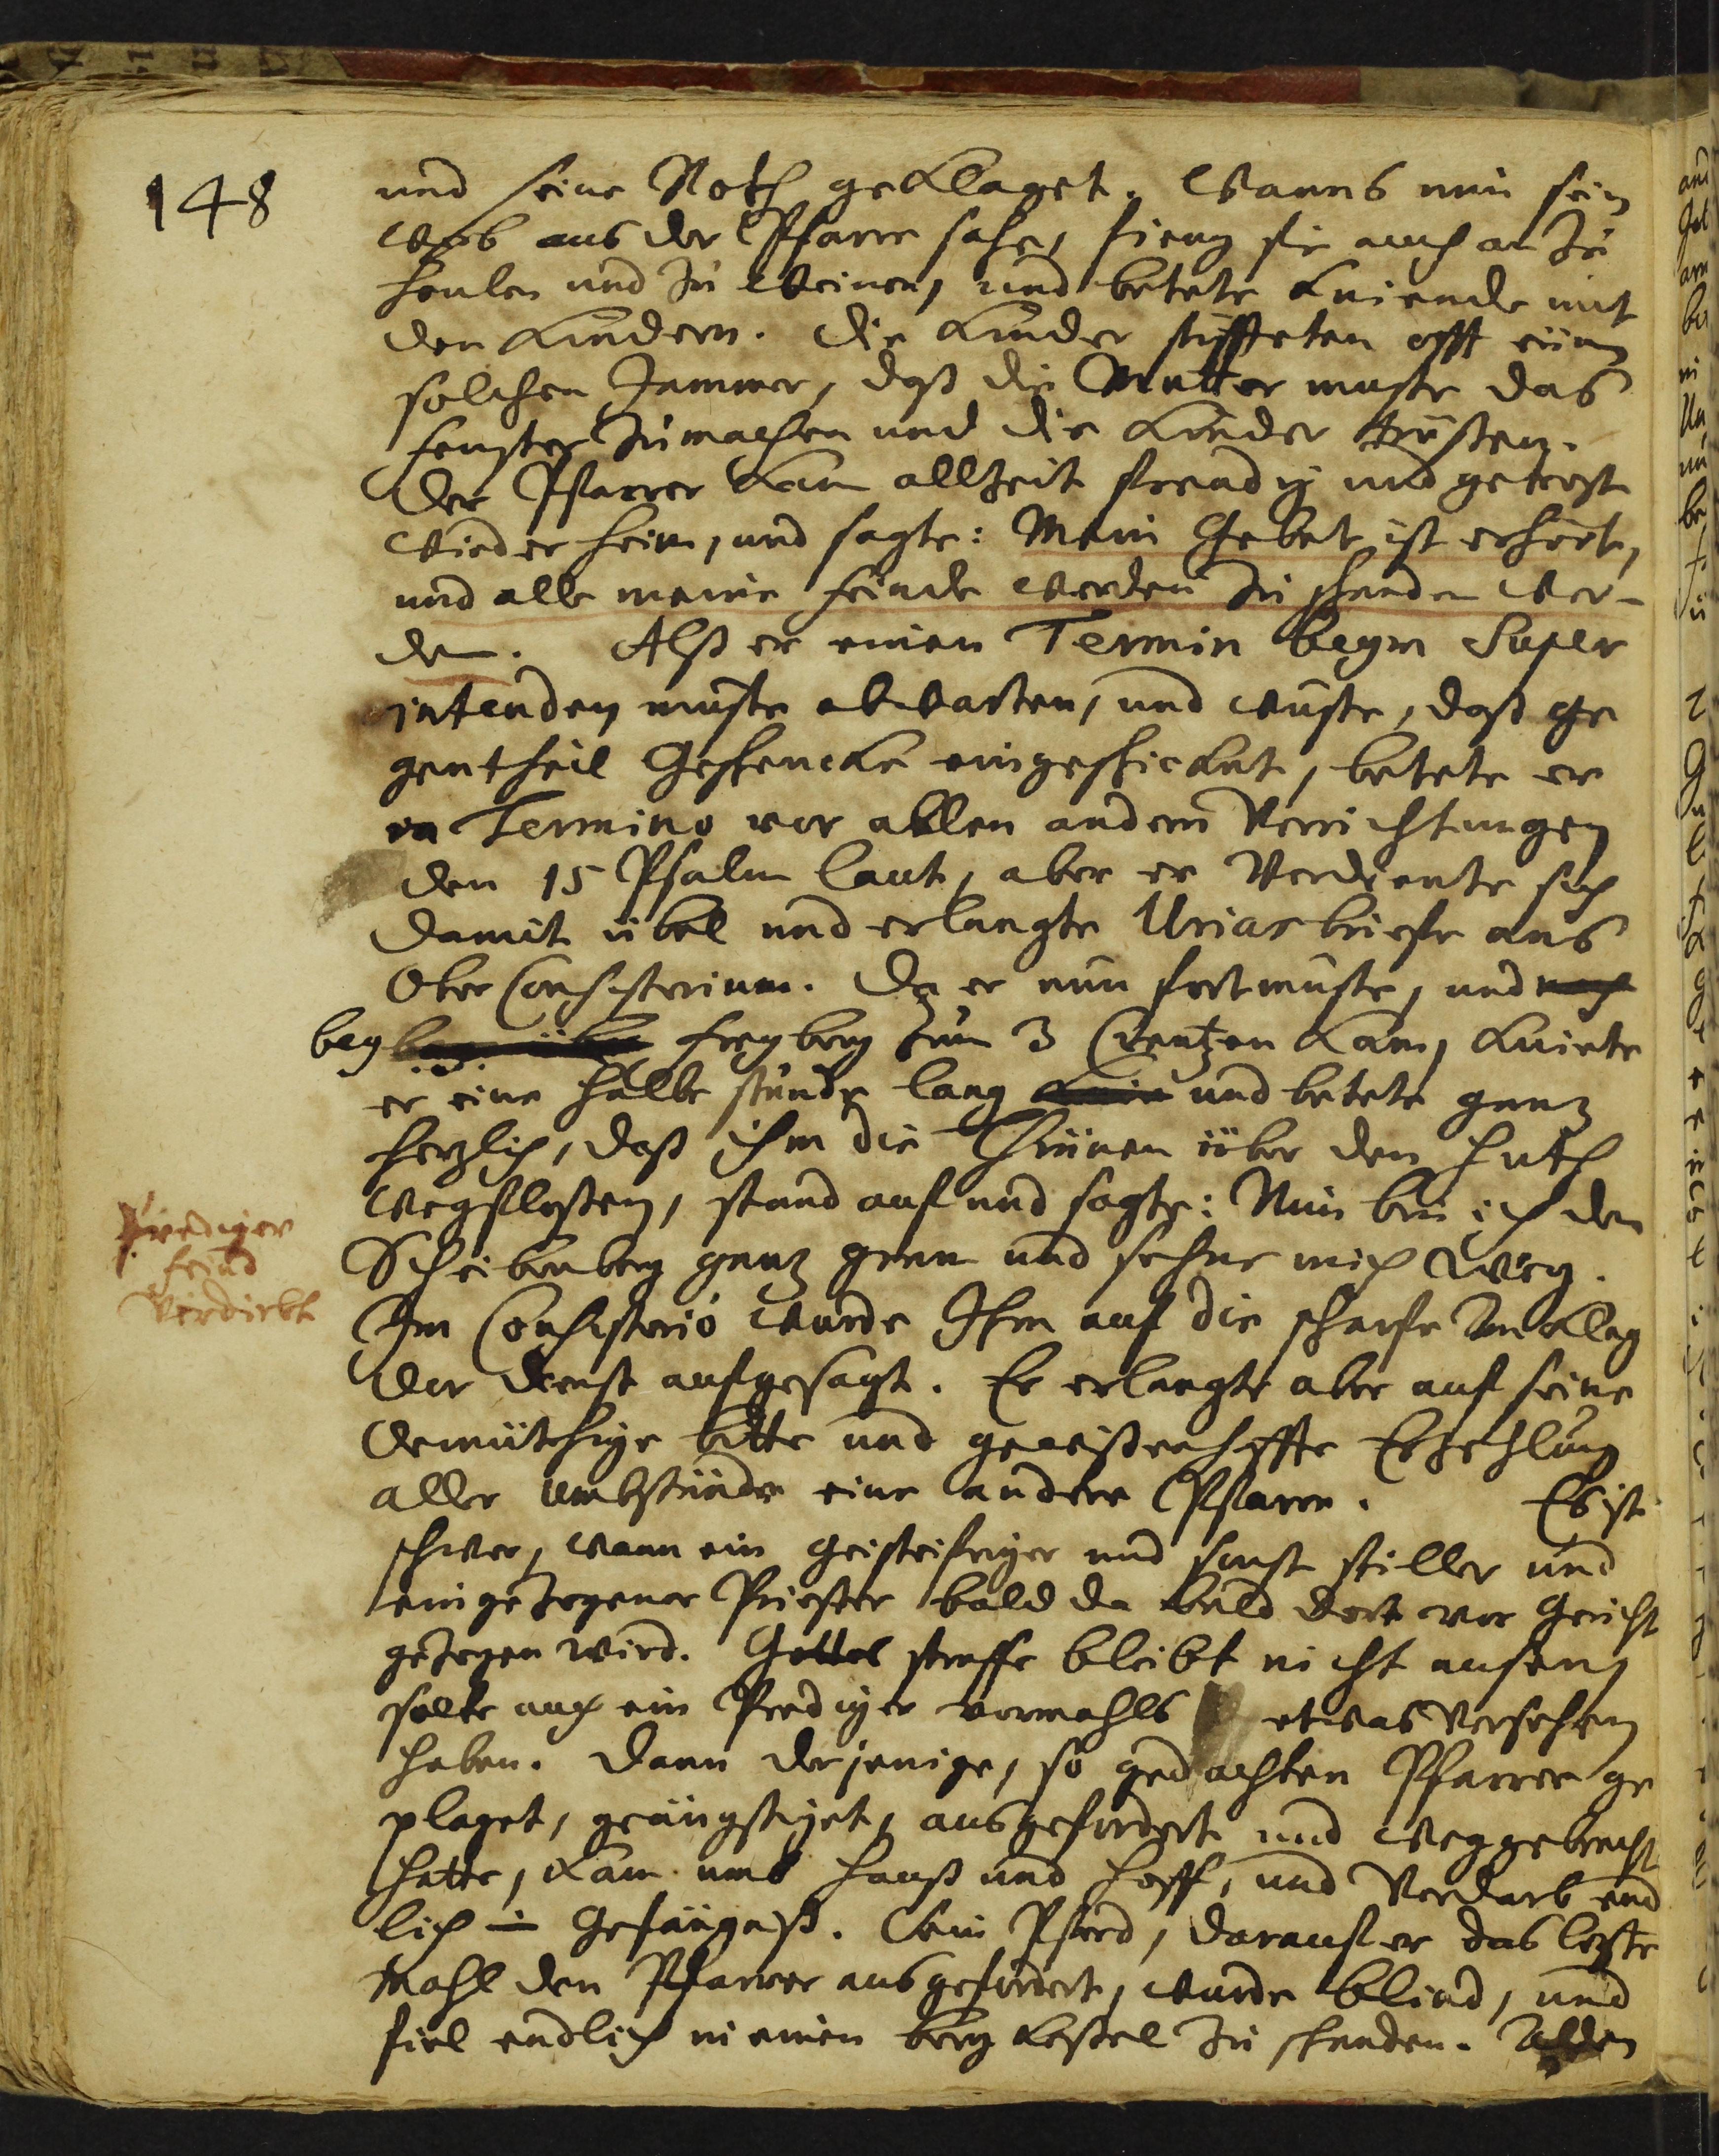 148
und seine Noth geklaget. Wanns nun sein
Weib aus der Pfarre sahe, fieng sie auch an zu
heulen und zu weinen, und betete kniende mit
den Kindern. Die Kinder stiffteten offt einen
solchen Jammer, daß die Mutter muste das
fenster zumachen und die Kinder trösten.
Der Pfarrer kam allzeit freudig und getrost
wieder heim, und sagte: Mein Gebet ist erhört,
und alle meine feinde werden zu schanden wer-
den. Alß er einen Termin beym Super
intenden muste abwarten, und wuste, daß ge
gentheil Geschencke eingeschickt, betete er
in Termino vor allen andern Verrichtungen
den 15 Psalm laut, aber er verdiente sich
damit übel und erlangte Urias briefe ans
Ober Consistorium. Da er nun fort muste, und nach
bey Freyberg zun 3 Creutzen kam, kniete
er eine halbe stunde lang und betete ganz
herzlich, daß ihm die Thränen über den huth
wegflossen, stand auf und sagte: Nun bin ich dem
Scheibenberg ganz gram und sehne mich weg.
Prediger
feind
verdirbt
Im Consistorio wurde Ihm auf die scharfe Anklag
der dienst aufgesagt. Er erlangte aber auf seine
demüthige bitte und gewissenhaffte Erzehlung
aller Umbstände eine andere Pfarre. Es ist
schwer, wann ein geisteifriger und sonst stiller und
eingezogener Priester bald da bald dort vor Gericht
gezogen wird. Gottes straffe bleibt nicht außen,
solte auch ein Prediger vormahls etwas versehen
haben. Dann derjenige, so gedachten Pfarrer ge
plaget, geängstiget, ausgefordert und weggebracht
hatte, kam umb hauß und hoff, und verdarb end
lich in Gefängniß. Sein Pferd, darauf er das letzte
mahl den Pfarrer ausgefordert, wurde blind, und
fiel endlich in einen berg kessel zu schanden. Allen